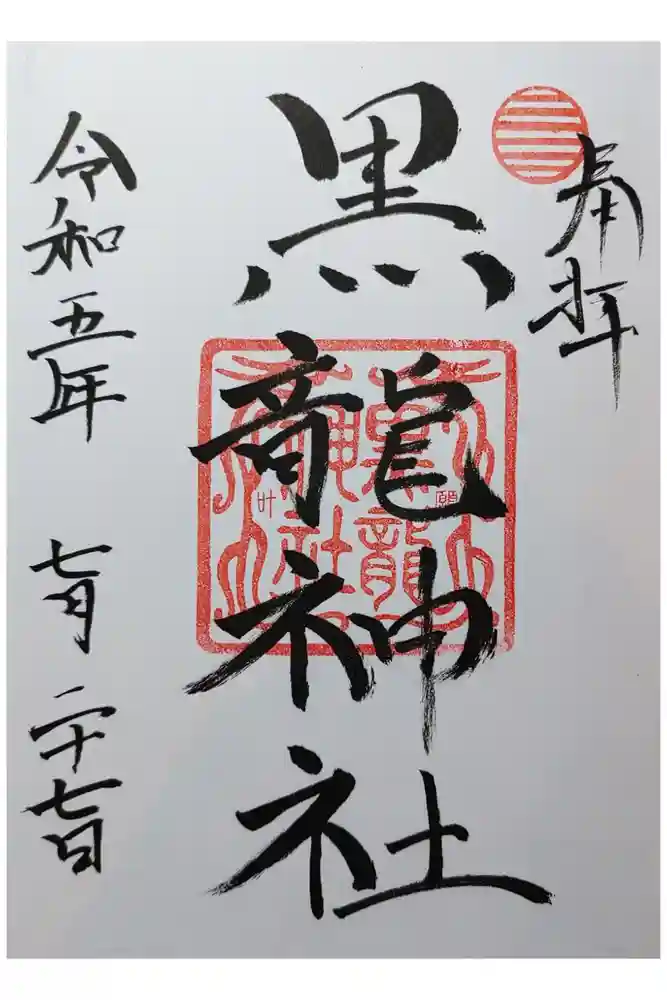 奉拝
黒龍神社
黒龍
神社
願
叶
令和五年 七月 二十七日